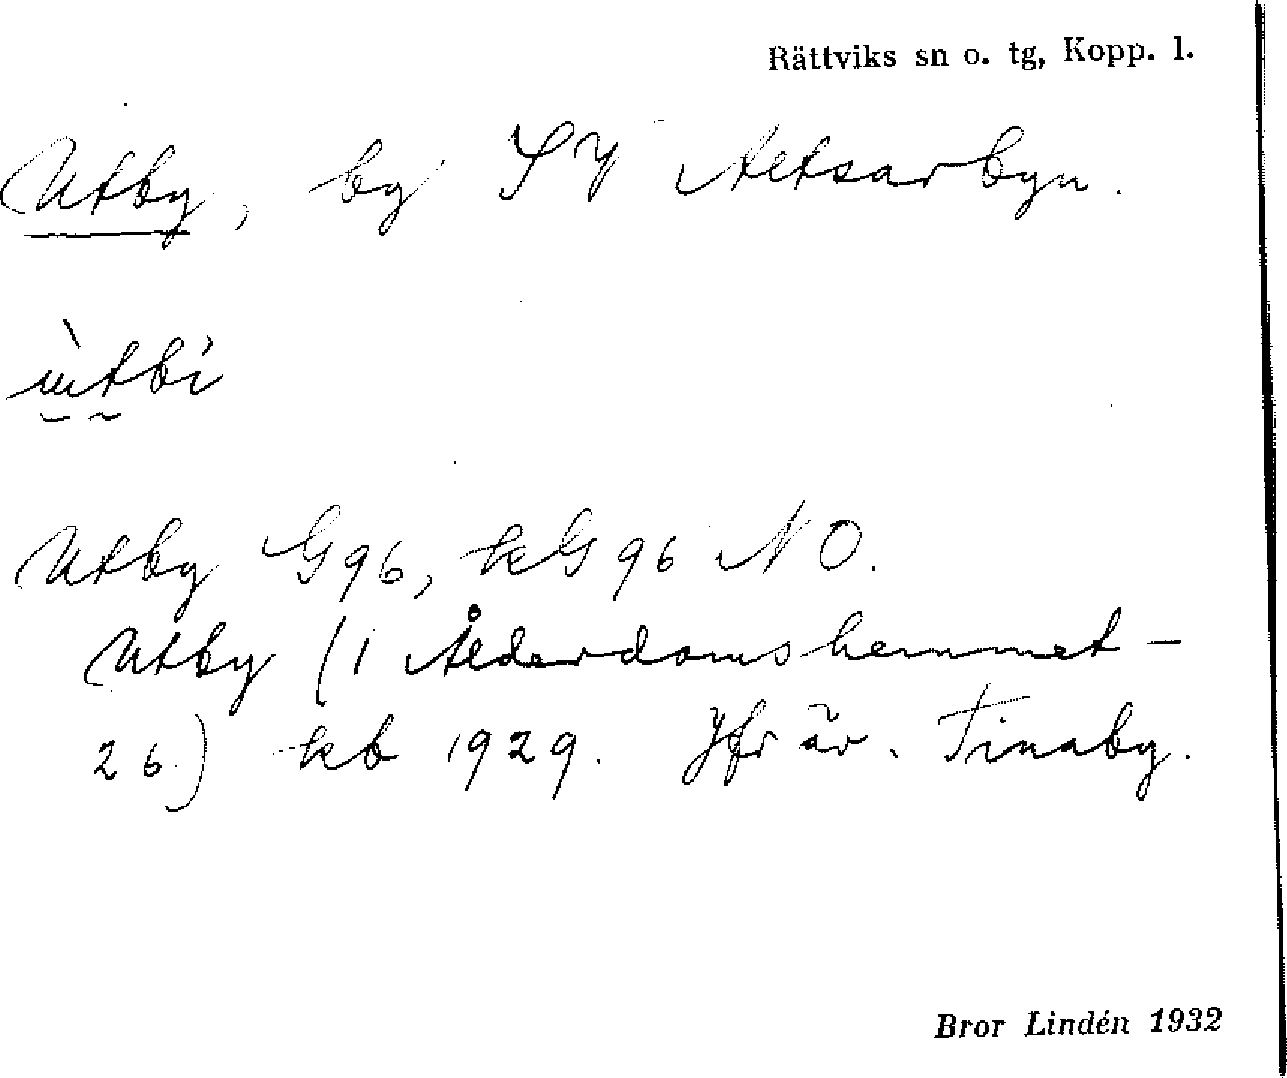 Rättviks sn o. tg, Kopp. l.
Utby, by SV Altsarbyn.
ùtbi
Utby G96, kG96 NO.
Utby (1 Ålderdomshemmet –
26.) kb 1929. Jfr äv. Finaby.
Bror Lindén 1932